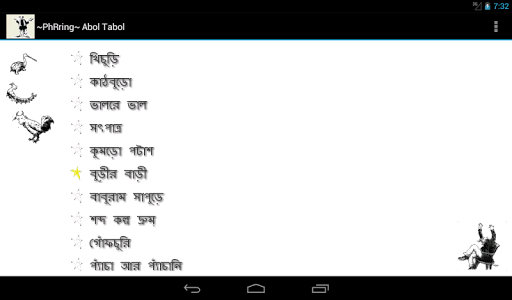 7:32
~PhRring~ Abol Tabol
খিচুড়ি
কাঠবুড়ো
ভালরে ভাল
সৎপাত্র
কুমড়ো পটাশ
বুড়ীর বাড়ী
বাবুরাম সাপুড়ে
শব্দ কল্প দ্রুম
গোঁফচুরি
প্যাঁচা আর প্যাঁচানি